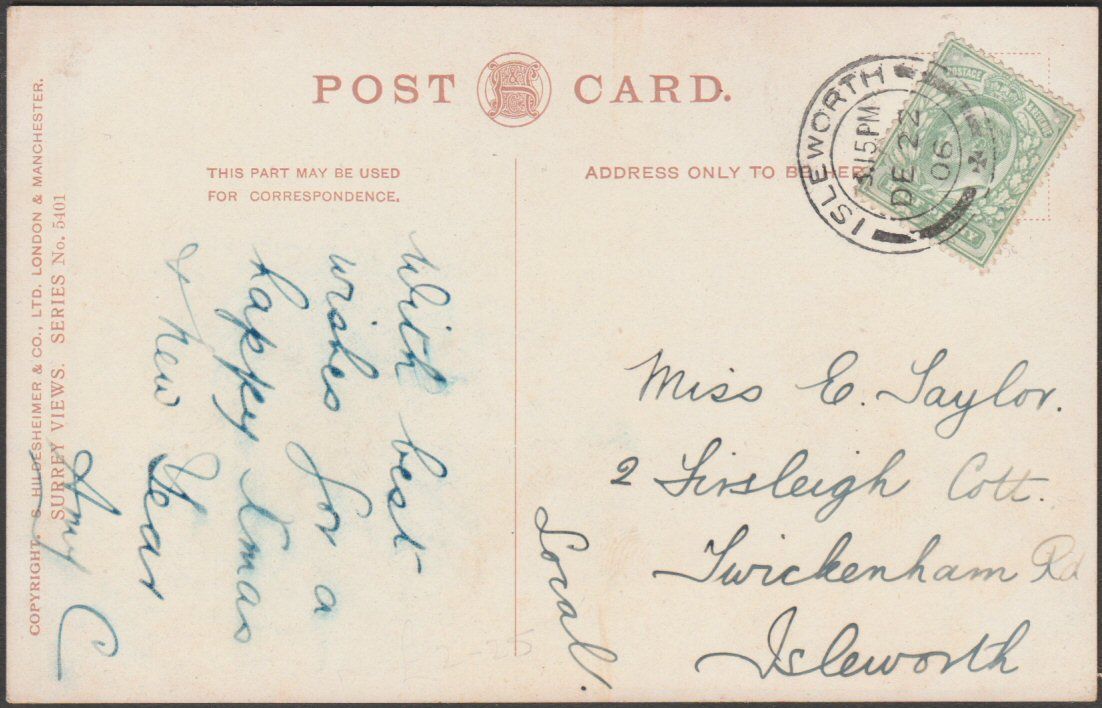 POST CARD.
THIS PART MAY BE USED
FOR CORRESPONDENCE.
ADDRESS ONLY TO BE HERE
ISLEWORTH
3.15 PM
DE 22
06
POSTAGE
With best
wishes for a
happy Xmas
& New Year
Amy C
Miss E. Taylor.
2 Firsleigh Cott.
Twickenham Rd
Isleworth
Local.
COPYRIGHT. S. HILDESHEIMER & CO., LTD. LONDON & MANCHESTER.
SURREY VIEWS. SERIES No. 5401
£2-25